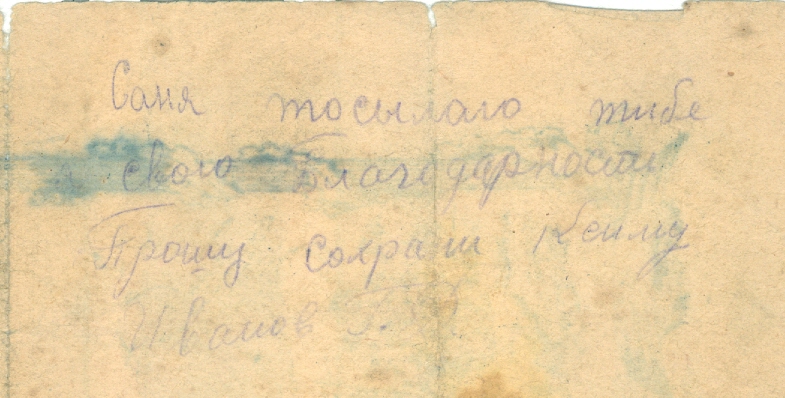 Саня посылаю тибе
свою Благодарность
Прошу сохрани
Иванов Г.